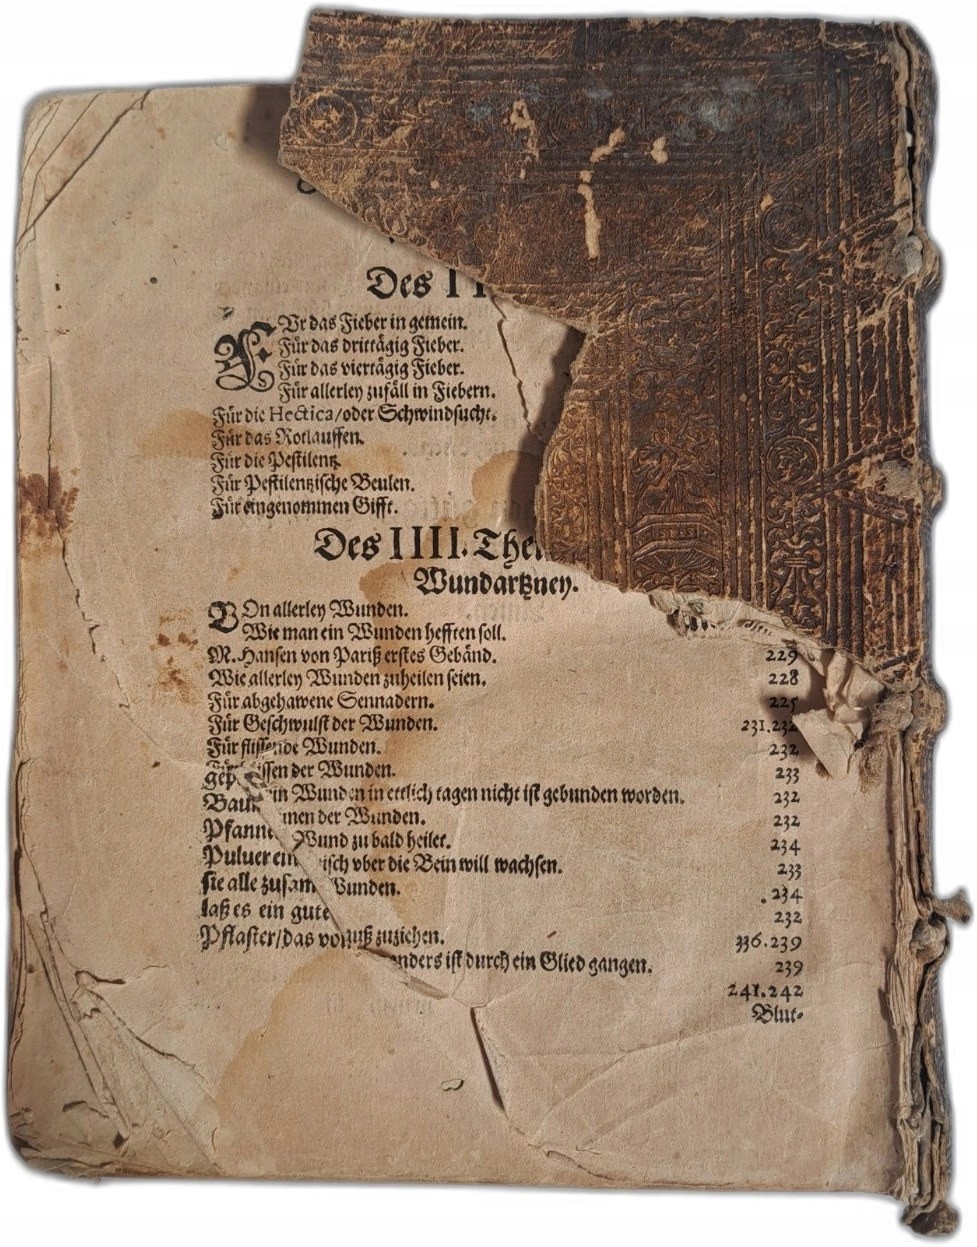 Des II
FUr das Fieber in gemein.
Für das drittägig Fieber.
Für das viertägig Fieber.
Für allerley zufäll in Fiebern.
Für die Hectica/oder Schwindsucht.
Für das Rotlauffen.
Für die Pestilentz.
Für Pestilentzische Beulen.
Für eingenommen Gifft.
Des IIII. Thei
Wundartzney.
VOn allerley Wunden.
Wie man ein Wunden hefften soll.
M. Hansen von Pariß erstes Gebänd. 229
Wie allerley Wunden zuheilen seien. 228
Für abgehawene Sennadern. 225
Für Geschwulst der Wunden. 231.232
Für fliessende Wunden. 232
issen der Wunden. 233
gep
ein Wunden in ettlich tagen nicht ist gebunden worden. 232
Baum
nen der Wunden. 232
Pfanne
Wund zu bald heilet. 234
Puluer ein
isch vber die Bein will wachsen. 233
sie alle zusam
Wunden. .234
laß es ein gute 232
Pflaster/das vor
uß zuziehen. 336.239
anders ist durch ein Glied gangen. 239
241.242
Blut-